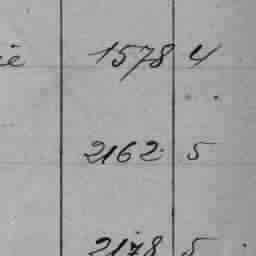 ie 1578 4
2162 5
2178 5